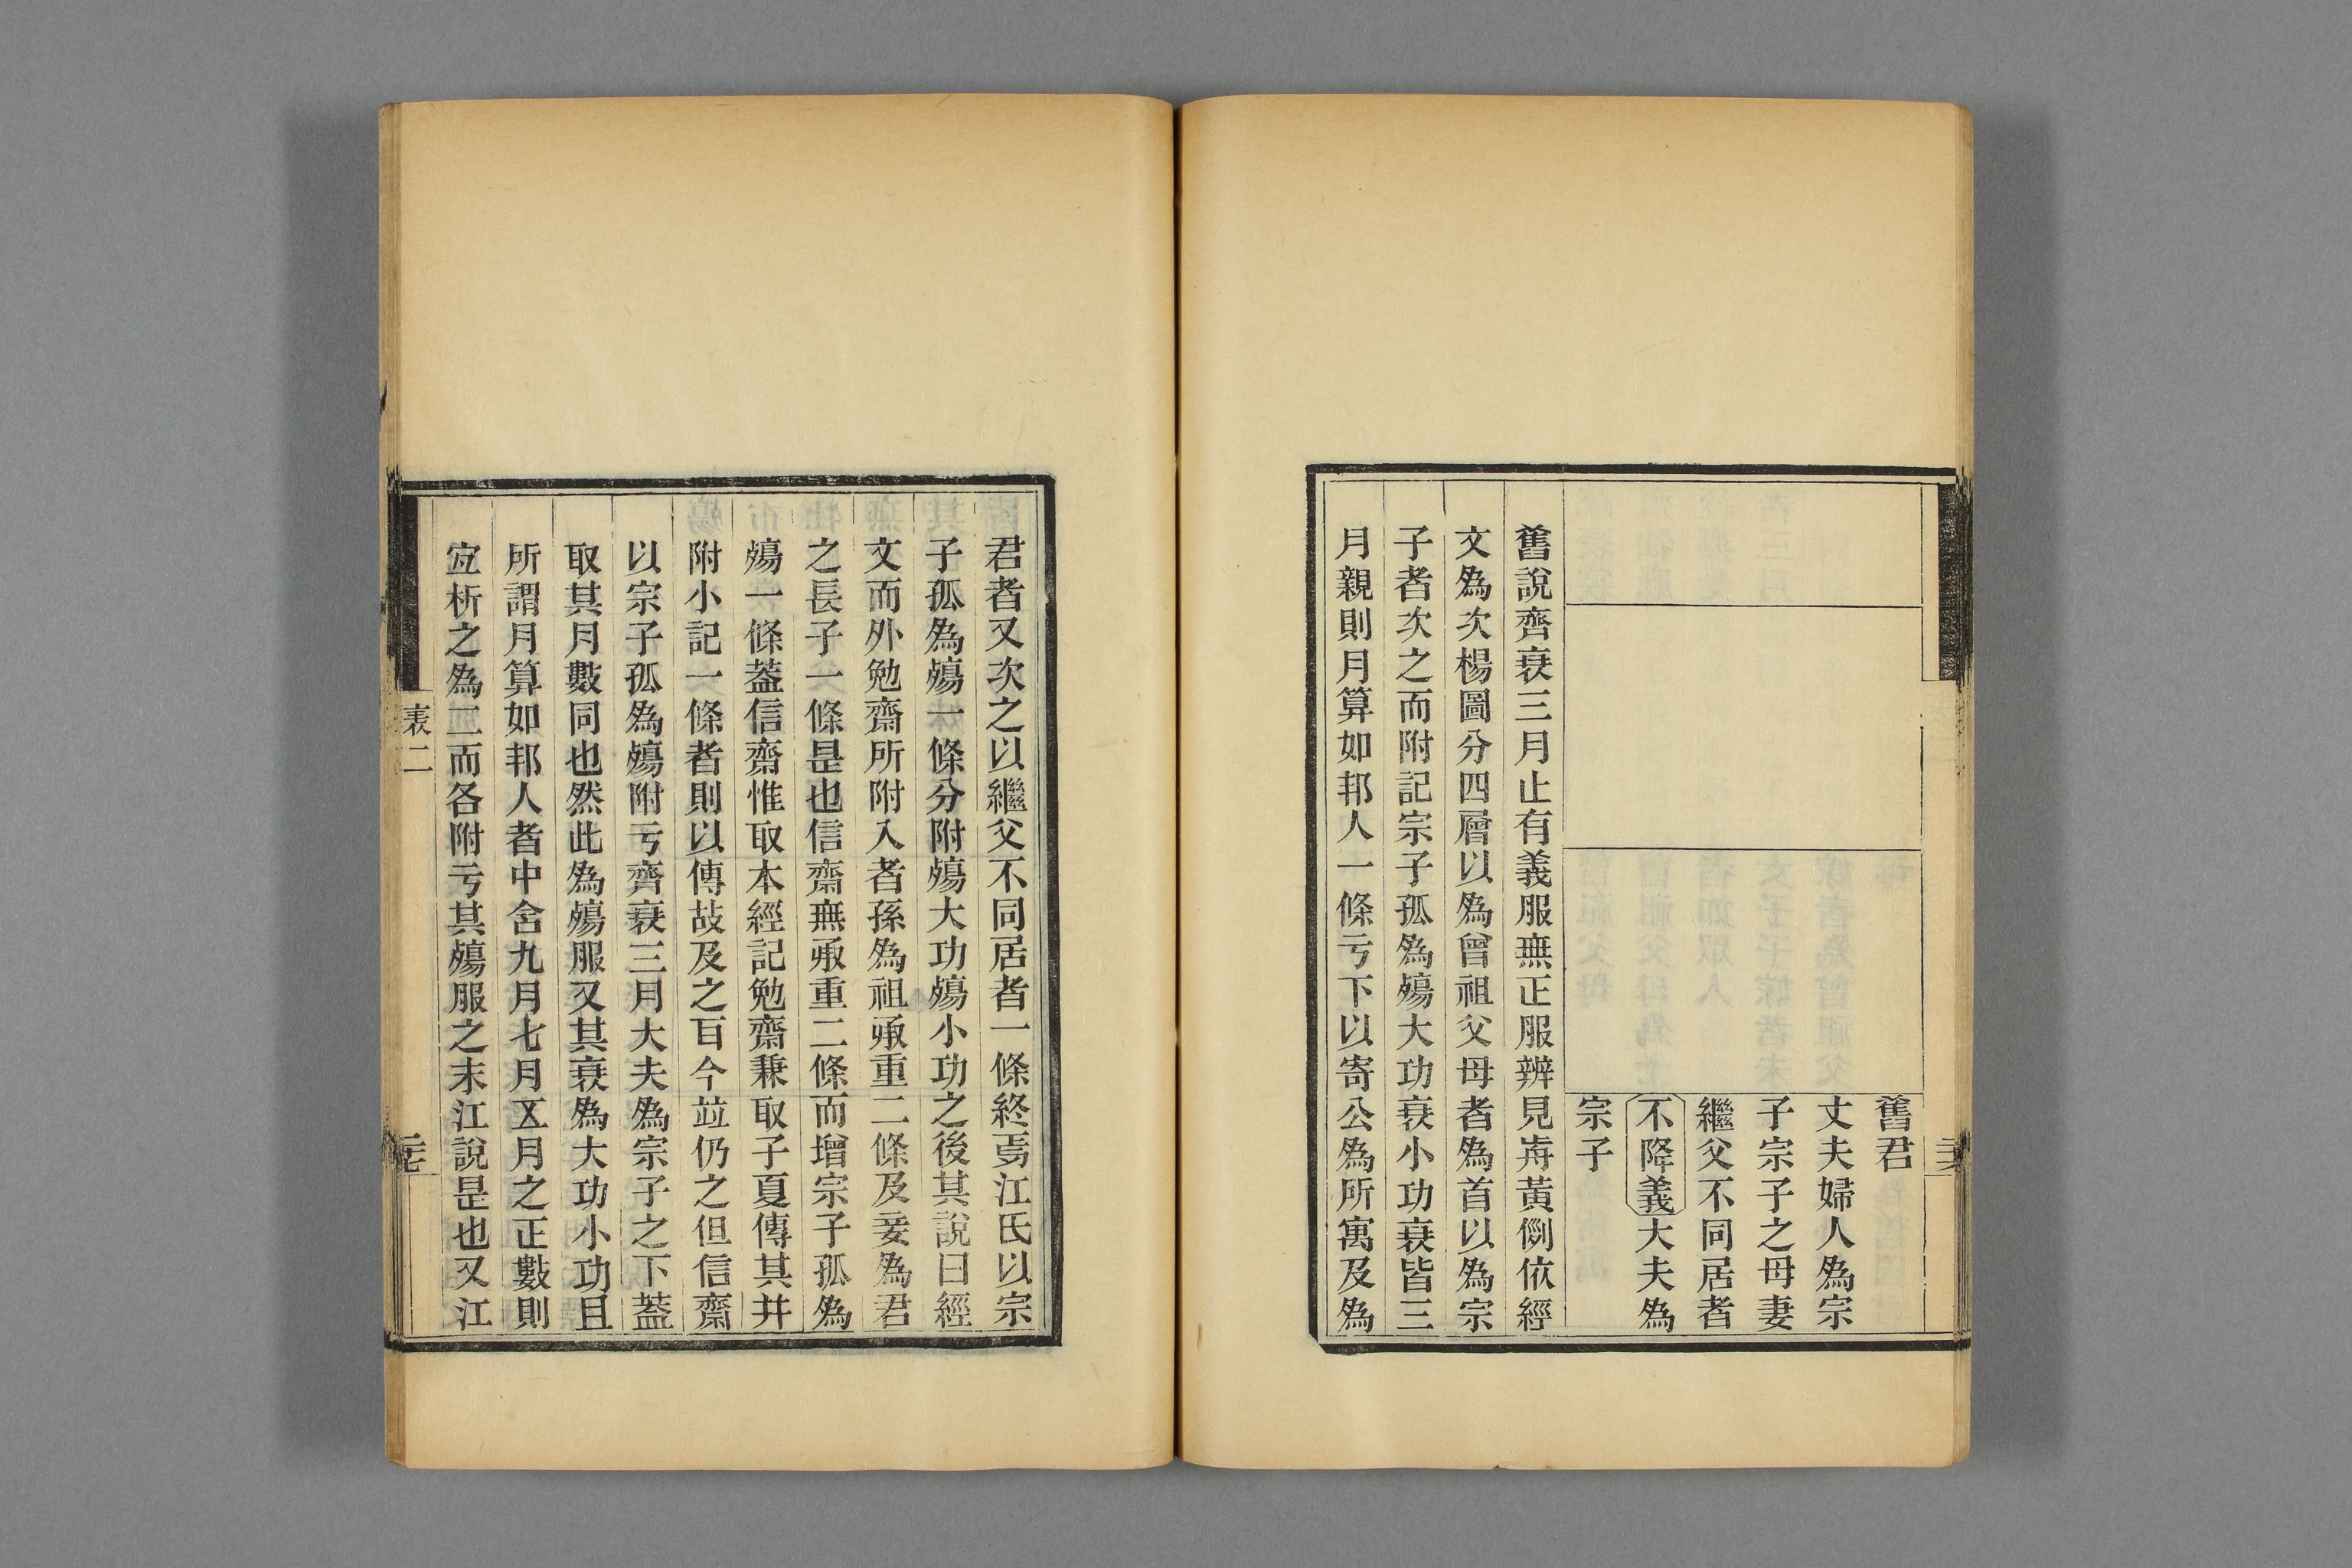 舊君
丈夫婦人爲宗
子宗子之母妻
繼父不同居者
不降義大夫爲
宗子
舊說齊衰三月止有義服無正服辨見歬黃側依經
文爲次楊圖分四層以爲曾祖父母者爲首以爲宗
子者次之而附記宗子孤爲殤大功衰小功衰皆三
月親則月算如邦人一條亏下以寄公爲所寓及爲
君者又次之以繼父不同居者一條終焉江氏以宗
子孤爲殤一條分附殤大功殤小功之後其說曰經
文而外勉齋所附入者孫爲祖承重二條及妾爲君
之長子一條是也信齋無承重二條而增宗子孤爲
殤一條蓋信齋惟取本經記勉齋兼取子夏傳其幷
附小記一條者則以傳故及之百今竝仍之但信齋
以宗子孤爲殤附亏齊衰三月大夫爲宗子之下蓋
取其月數同也然此爲殤服又其衰爲大功小功且
所謂月算如邦人者中含九月七月五月之正數則
宜析之爲二而各附亏其殤服之末江說是也又江
表二